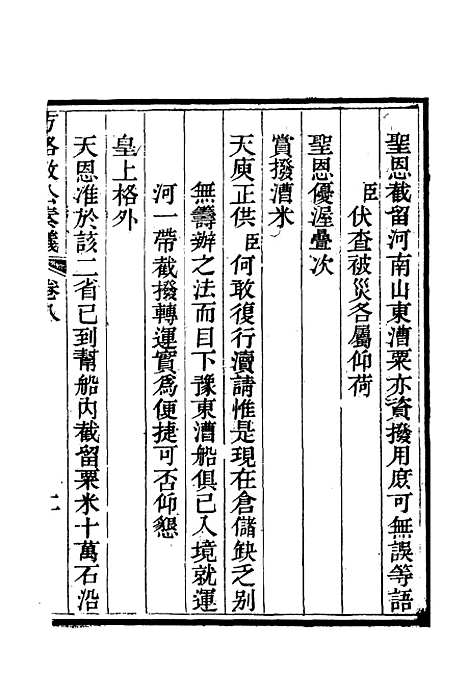 聖恩截留河南山東漕粟亦資撥用庶可無誤等語
臣伏查被災各屬仰荷
聖恩優渥疊次
賞撥漕米
天庾正供臣何敢復行瀆請惟是現在倉儲缺乏別
無籌辦之法而目下豫東漕船俱已入境就運
河一帶截撥轉運實為便捷可否仰懇
皇上格外
天恩准於該二省已到幫船內截留粟米十萬石沿
方恪敏公奏議 卷八